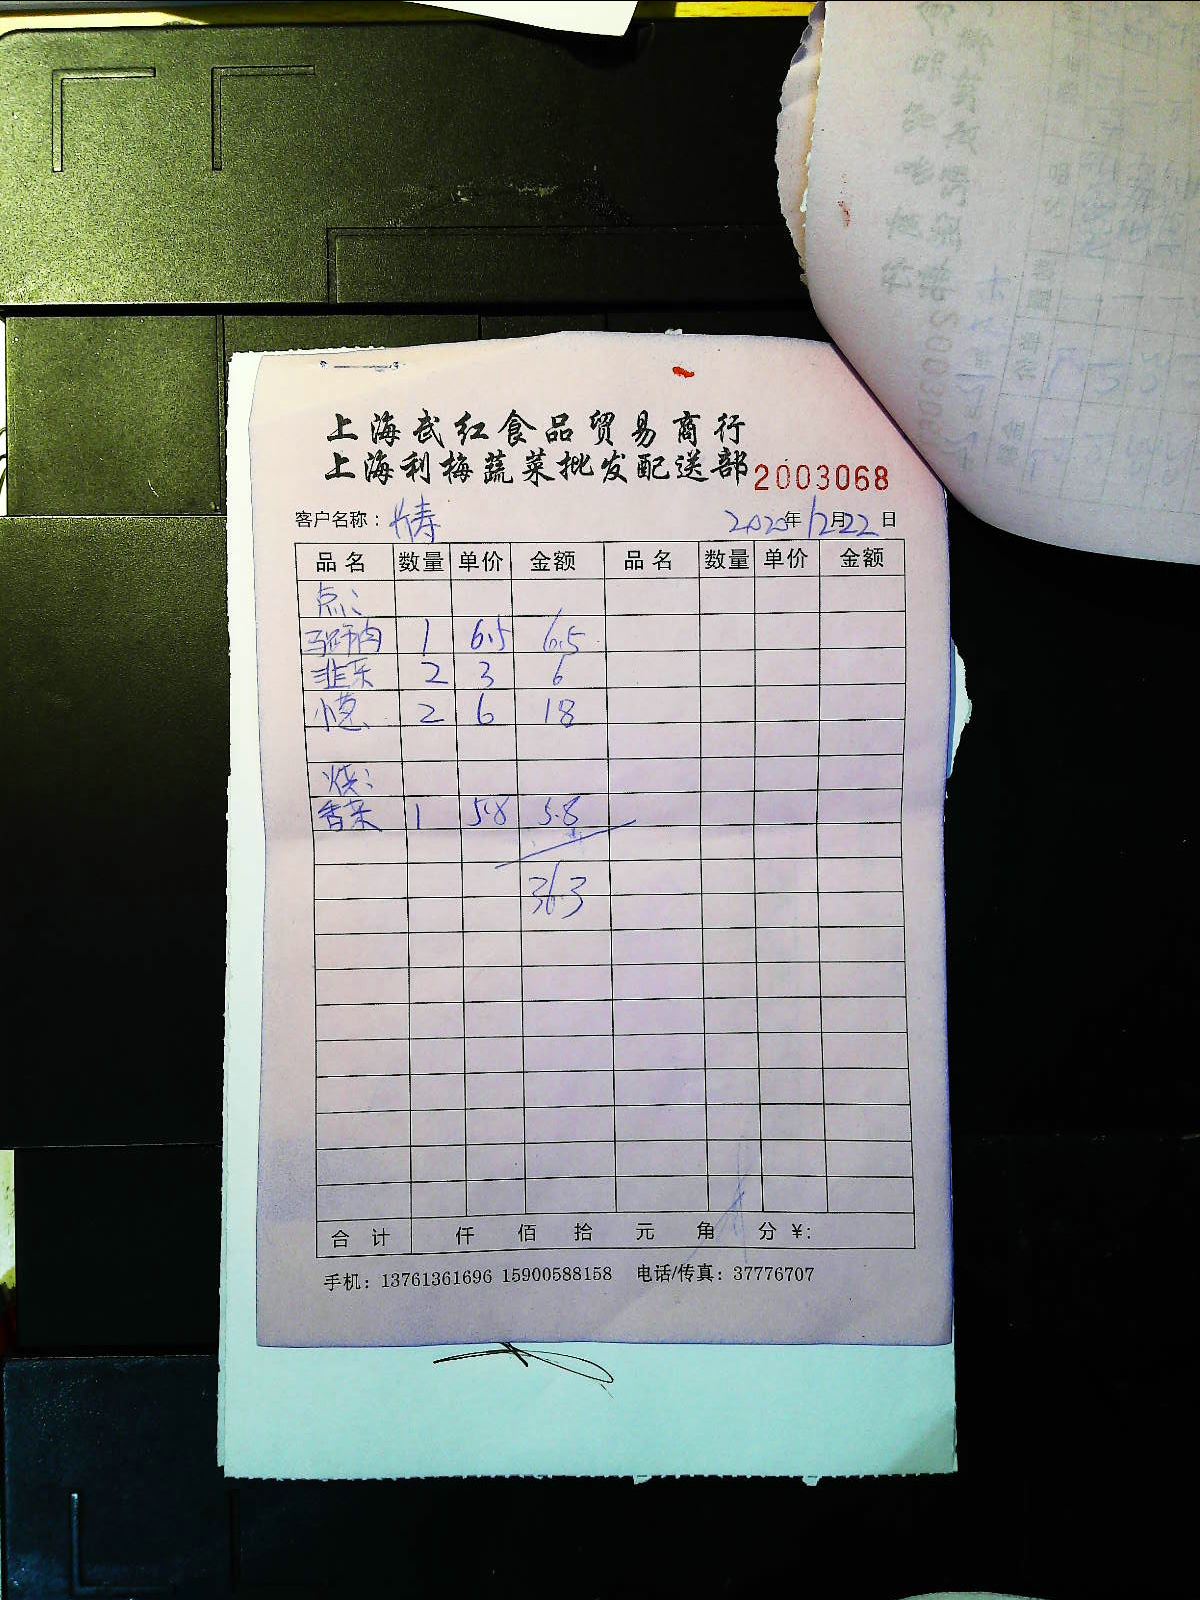 上海武红食品贸易商行
上海利梅蔬菜批发配送部 2003068
客户名称： 长寿 2020年12月22日
品名 数量 单价 金额 品名 数量 单价 金额
点：
马蹄肉 1 6.5 6.5
韭菜 2 3 6
小葱 2 6 18
烧：
香菜 1 5.8 5.8
36.3
合计 仟 佰 拾 元 角 分 ¥:
手机：13761361696 15900588158 电话/传真：37776707